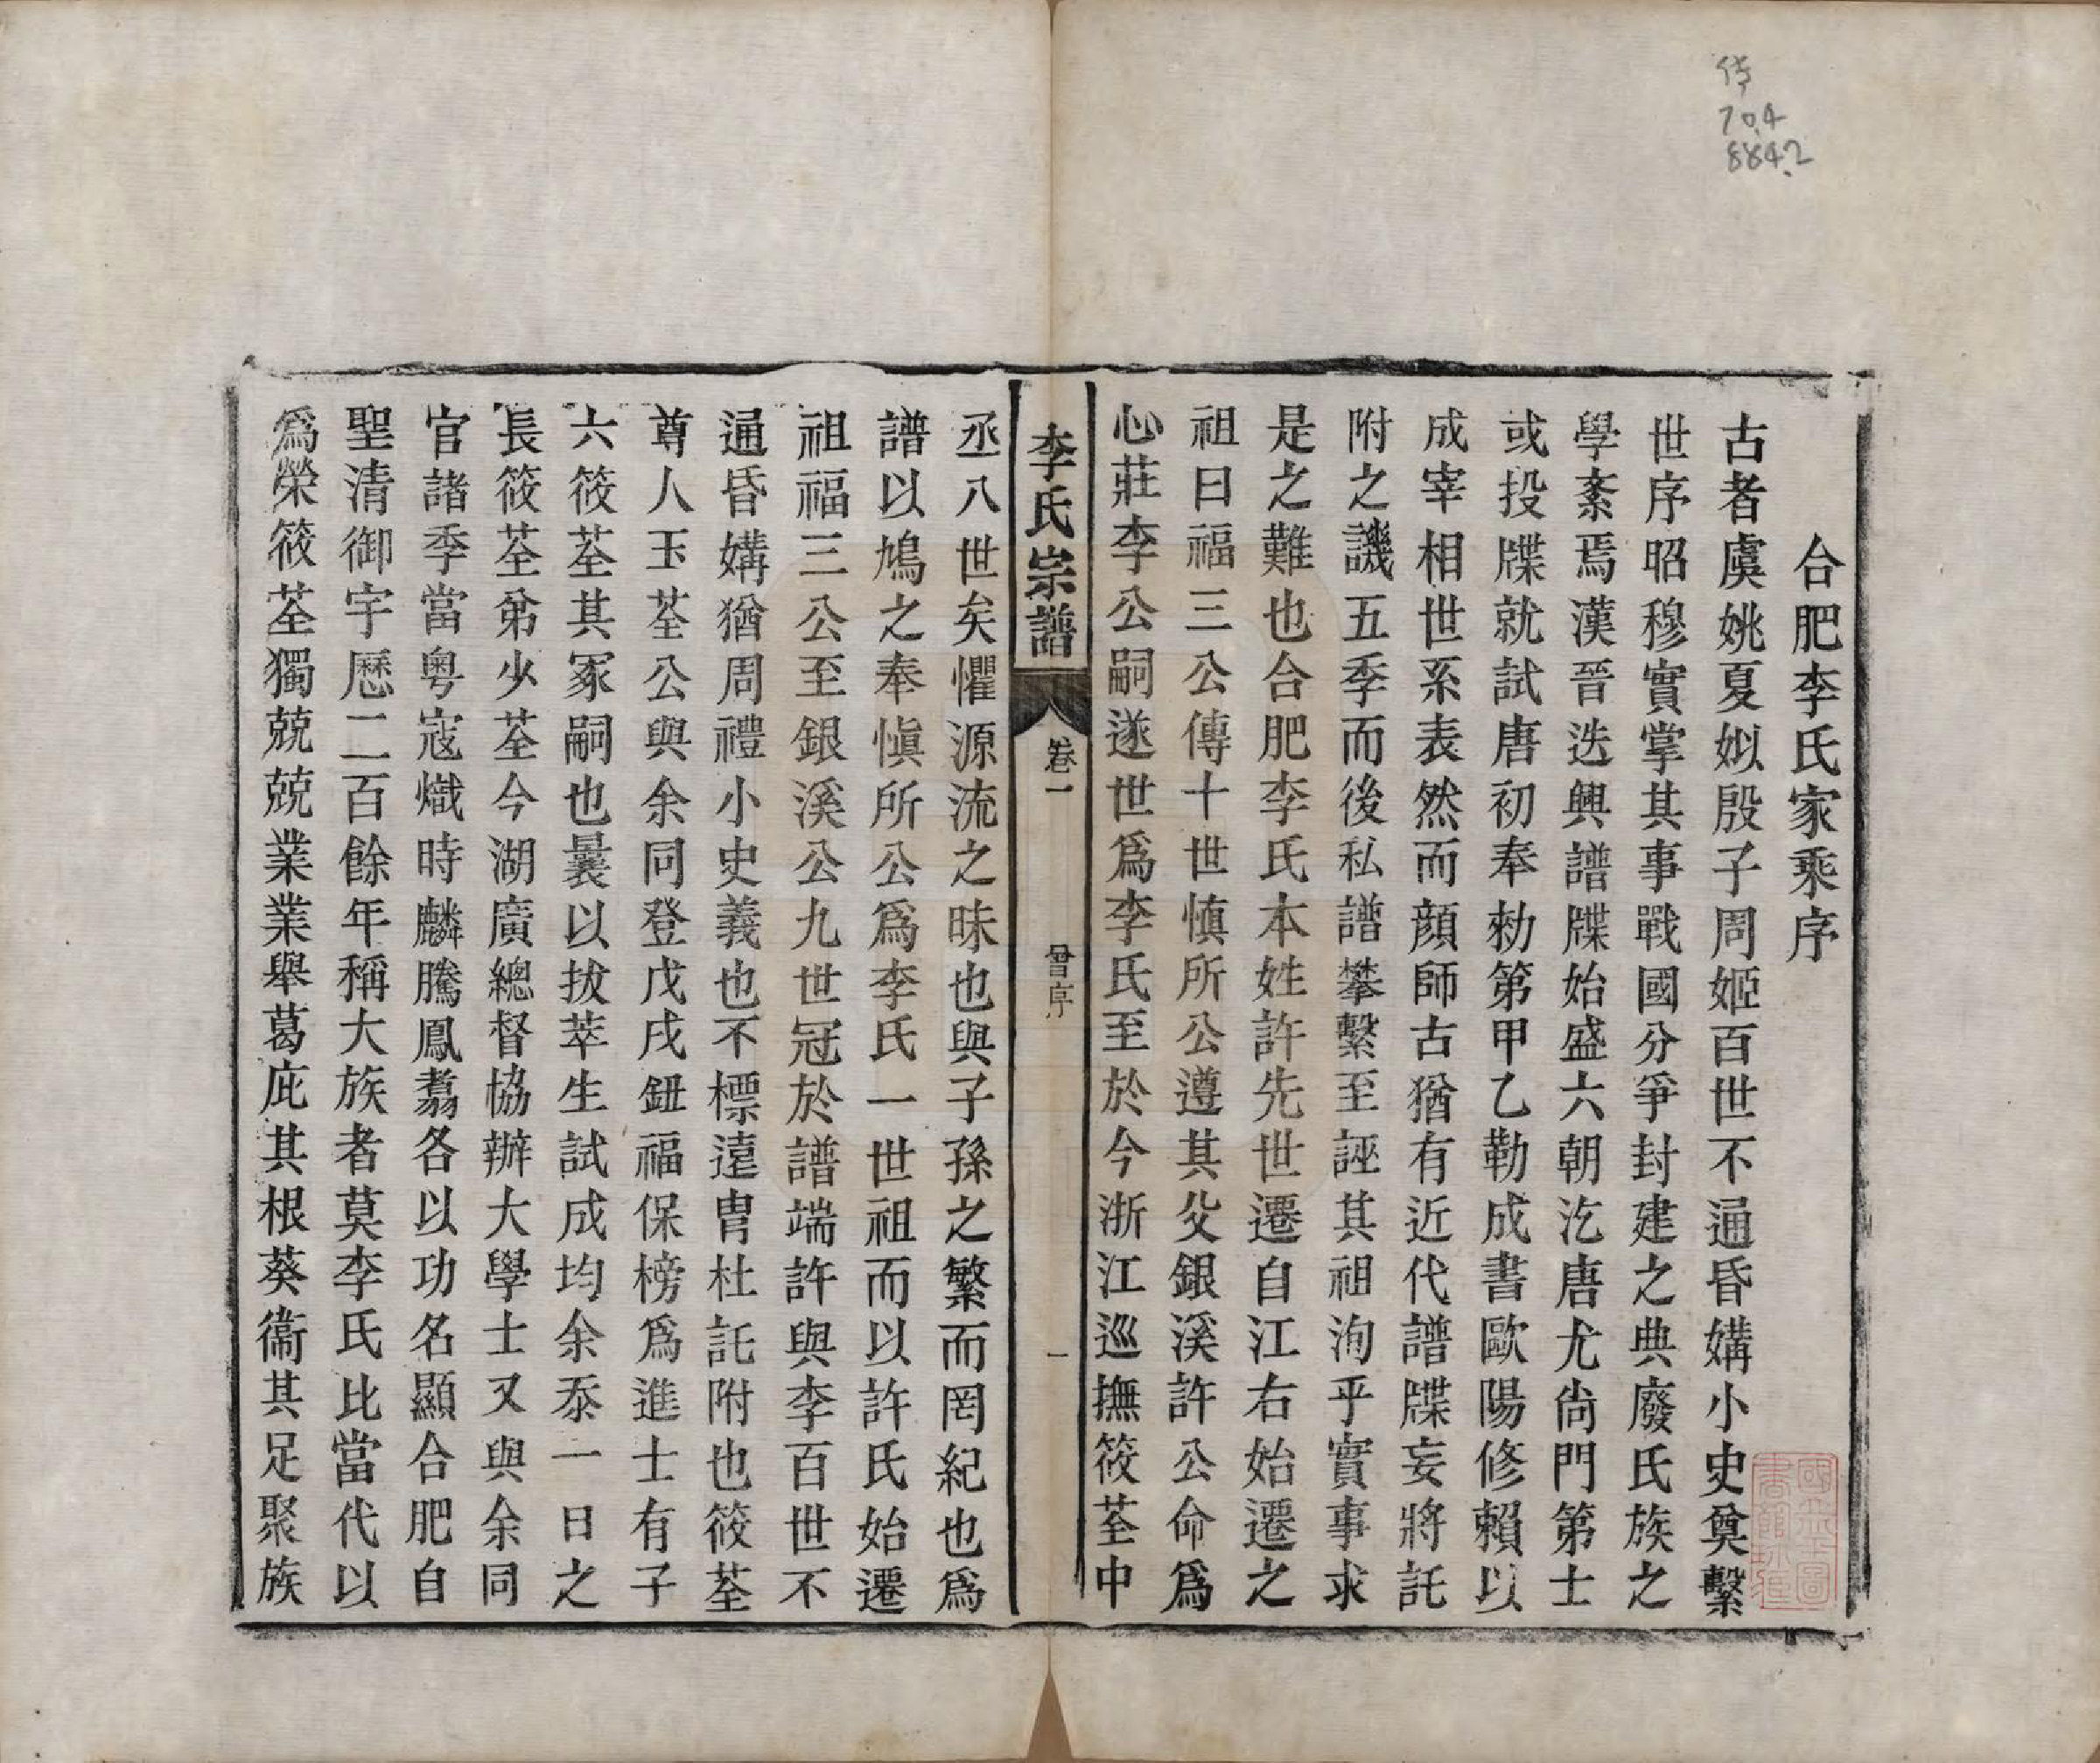 侍
704
8842
合肥李氏家乘序
古者虞姚夏姒殷子周姬百世不通昏媾小史奠繫
世序昭穆實掌其事戰國分爭封建之典廢氏族之
學紊焉漢晉迭興譜牒始盛六朝汔唐尤尙門第士
或投牒就試唐初奉勑第甲乙勒成書歐陽修賴以
成宰相世系表然而顔師古猶有近代譜牒妄將託
附之譏五季而後私譜攀繫至誣其祖洵乎實事求
是之難也合肥李氏本姓許先世遷自江右始遷之
祖曰福三公傳十世慎所公遵其父銀溪許公命爲
心莊李公嗣遂世爲李氏至於今浙江巡撫筱荃中
李氏宗譜
卷一
曾序
一
丞八世矣懼源流之昧也與子孫之繁而罔紀也爲
譜以鳩之奉愼所公爲李氏一世祖而以許氏始遷
祖福三公至銀溪公九世冠於譜端許與李百世不
通昏媾猶周禮小史義也不標遠胄杜託附也筱荃
尊人玉荃公與余同登戊戌鈕福保榜爲進士有子
六筱荃其冢嗣也曩以拔萃生試成均余忝一日之
長筱荃弟少荃今湖廣總督協辦大學士又與余同
官諸季當粤寇熾時麟騰鳳翥各以功名顯合肥自
聖清御宇厯二百餘年稱大族者莫李氏比當代以
爲榮筱荃獨兢兢業業舉葛庇其根葵衞其足聚族
國立北平圖書館珍藏